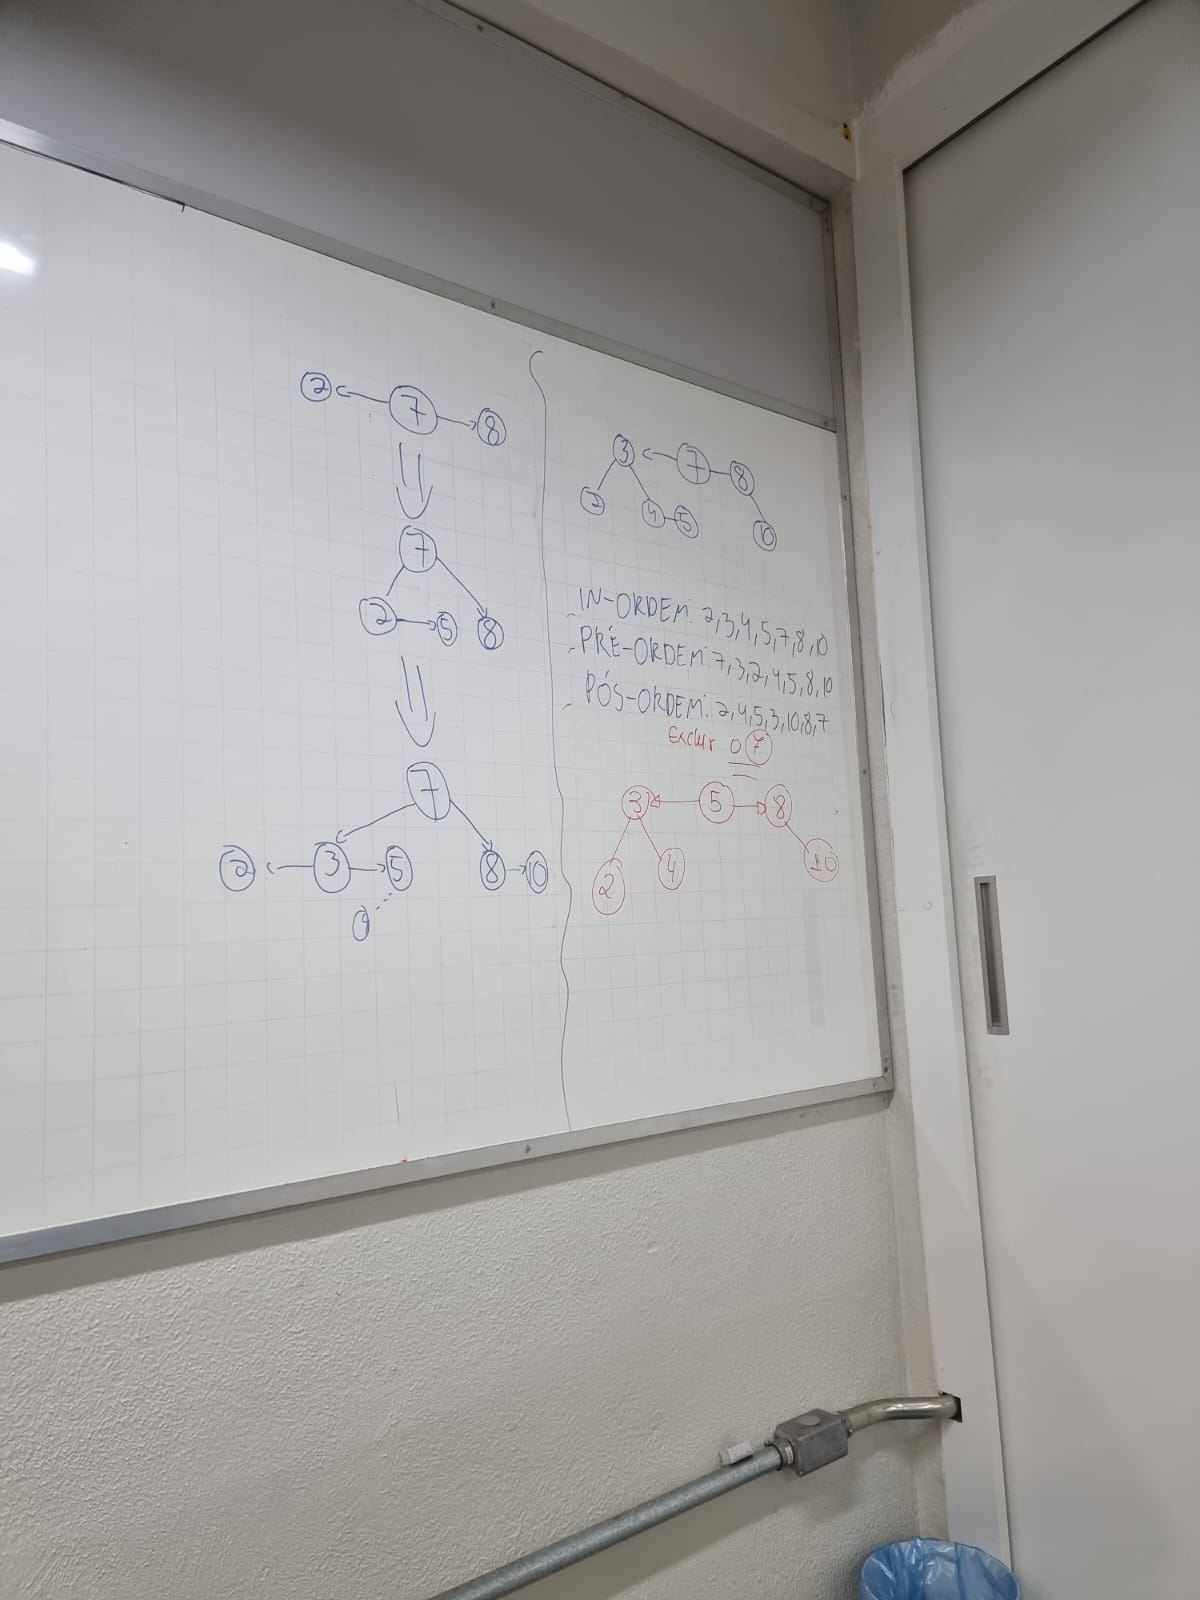 2 7 8
7
2 5 8
7
2 3 5 8 10
3 7 8
2 4 5 10
IN-ORDEM: 2,3,4,5,7,8,10
PRÉ-ORDEM: 7,3,2,4,5,8,10
PÓS-ORDEM: 2,4,5,3,10,8,7
Excluir o 7
3 5 8
2 4 10